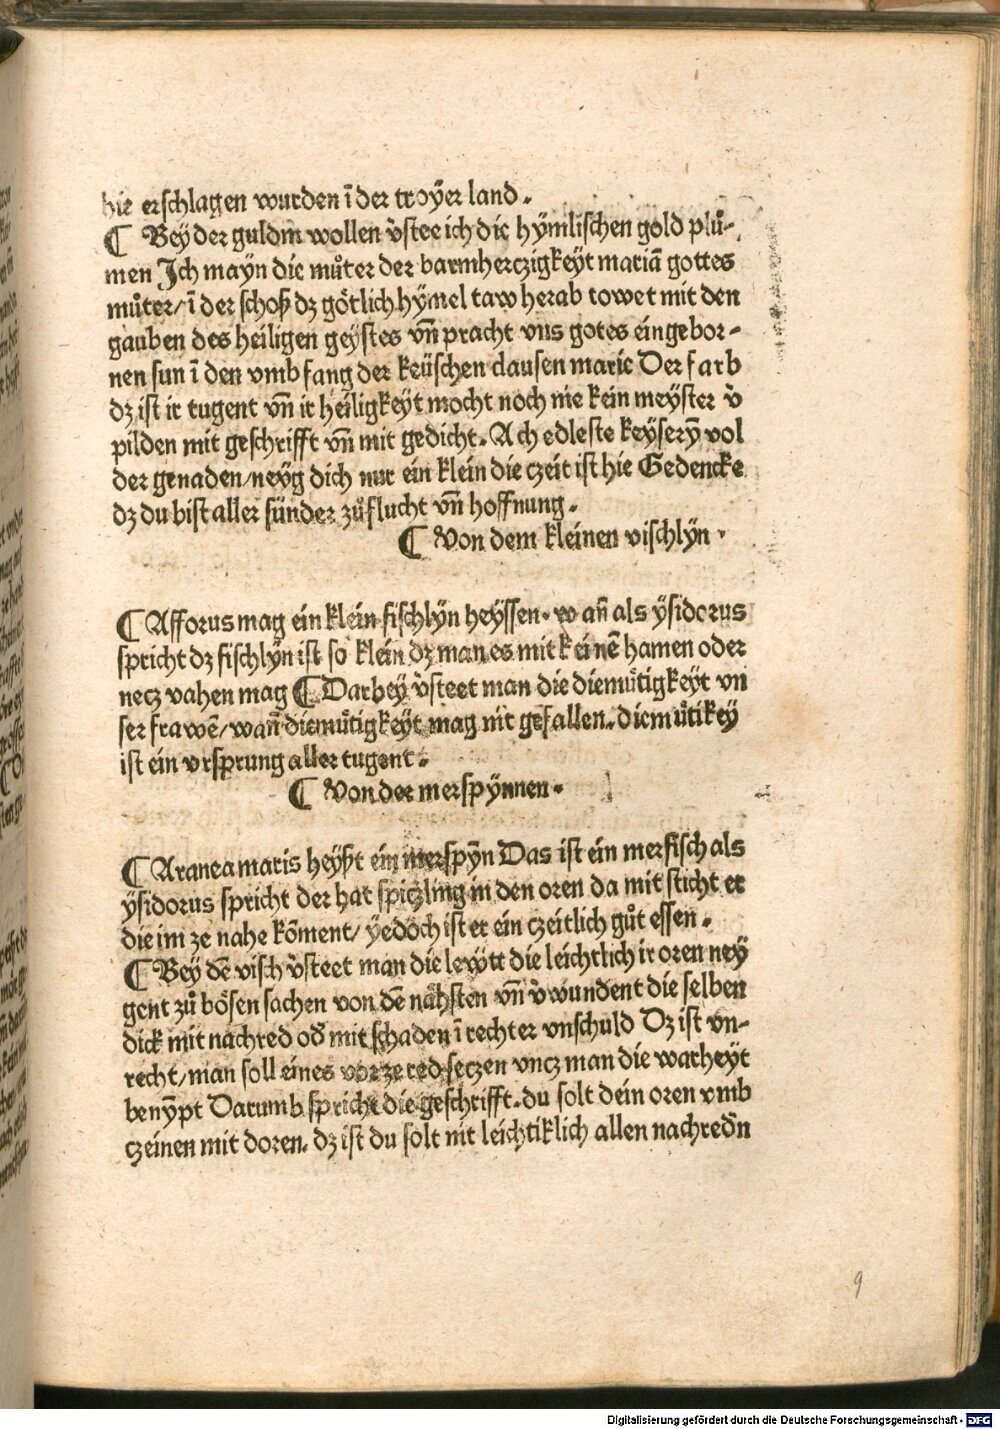 hie erschlagen wurden ī der troÿer land.
¶ Beÿ der guldin wollen v̓stee ich die hÿmlischen gold plů-
men Ich maÿn die můter der barmherczigkeÿt mariā gottes
můter/ ī der schoß dz götlich hÿmel taw herab towet mit den
gauben des heiligen geÿstes vn̄ pracht vns gotes eingebor-
nen sun ī den vmbfang der keüschen clausen marie Der farb
dz ist ir tugent vn̄ ir heiligkeÿt mocht noch nie kein meÿster v̓
pilden mit geschrifft vn̄ mit gedicht. Ach edleste keÿserȳ vol
der genaden/ neÿg dich nur ein klein die czeit ist hie Gedencke
dz du bist aller sünder zůflucht vn̄ hoffnung.
¶ Von dem kleinen vischlÿn.
¶ Afforus mag ein klein fischlÿn heÿssen. wan̄ als ÿsidorus
spricht dz fischlÿn ist so klein dz man es mit keinē hamen oder
necz vahen mag ¶ Darbeÿ v̓steet man die diemütigkeÿt vn
ser frawē/ wan̄ diemütigkeÿt mag nit gefallen. diemütikeÿ
ist ein vrsprung aller tugent.
¶ Von der merspÿnnen.
¶ Aranea maris heÿßt ein merspȳn Das ist ein merfisch als
ÿsidorus spricht der hat spiczling in den oren da mit sticht er
die im ze nahe kōment/ ÿedoch ist er ein czeitlich gůt essen.
¶ Beÿ dē visch v̓steet man die lewtt die leichtlich ir oren neÿ
gent zů bösen sachen von dē nähsten vn̄ v̓wundent die selben
dick mit nachred od̓ mit schaden ī rechter vnschuld Dz ist vn-
recht/ man soll eines vor ze red seczen vncz man die warheÿt
benȳpt Darumb spricht die geschrifft. du solt dein oren vmb
czeinen mit doren. dz ist du solt nit leichtiklich allen nachred̓n
9
Digitalisierung gefördert durch die Deutsche Forschungsgemeinschaft - DFG